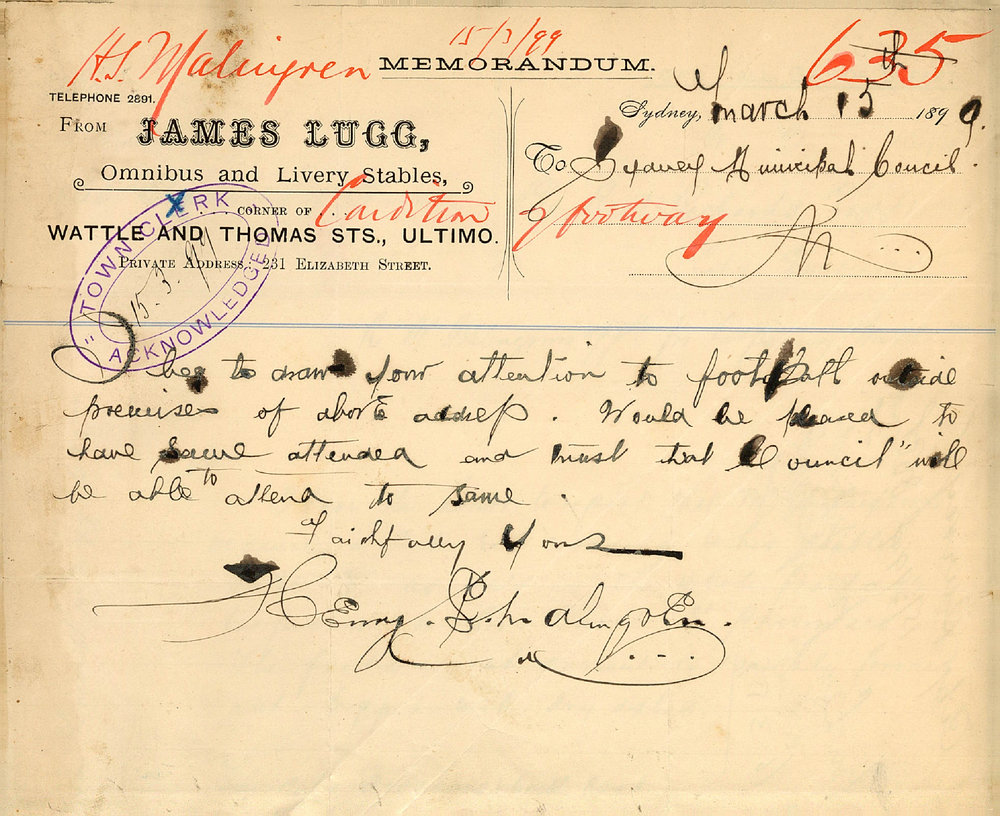 15/3/99
H.S. Malmgren MEMORANDUM. 635
TELEPHONE 2891.
Sydney, March 15th 1899.
FROM JAMES LUGG,
Omnibus and Livery Stables,
To Sydney Municipal Council.
CORNER OF
Condition of footway
WATTLE AND THOMAS STS., ULTIMO.
PRIVATE ADDRESS, 231 ELIZABETH STREET.
"TOWN CLERK
15.3.99
ACKNOWLEDGED
I beg to draw your attention to footpath outside
premises of above address. Would be pleased to
have same attended and trust that "Council" will
be able to attend to same.
Faithfully Yours
Henry